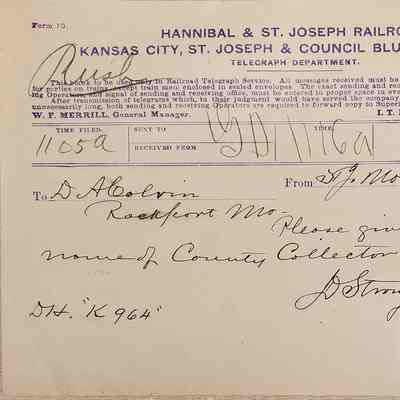 Form 10.
HANNIBAL & ST. JOSEPH RAILRO
KANSAS CITY, ST. JOSEPH & COUNCIL BLU
TELEGRAPH DEPARTMENT.
Rush
This book to be used only in Railroad Telegraph Service. All messages received must be
for parties on trains, except train men enclosed in sealed envelopes. The exact sending and rec
ing Operators, and signal of sending and receiving office, must be entered in proper space in ever
After transmission of telegrams which, in their judgment would have served the company
unnecessarily long, both sending and receiving Operators are required to forward copy to Superi
W. F. MERRILL, General Manager. I. T.
TIME FILED. SENT TO TIME.
1105a GD 1116a
RECEIVED FROM
To D A Colvin From St J. Mo
Rockport Mo.
Please give
name of County Collector
J D Stron
DH. "K 964"